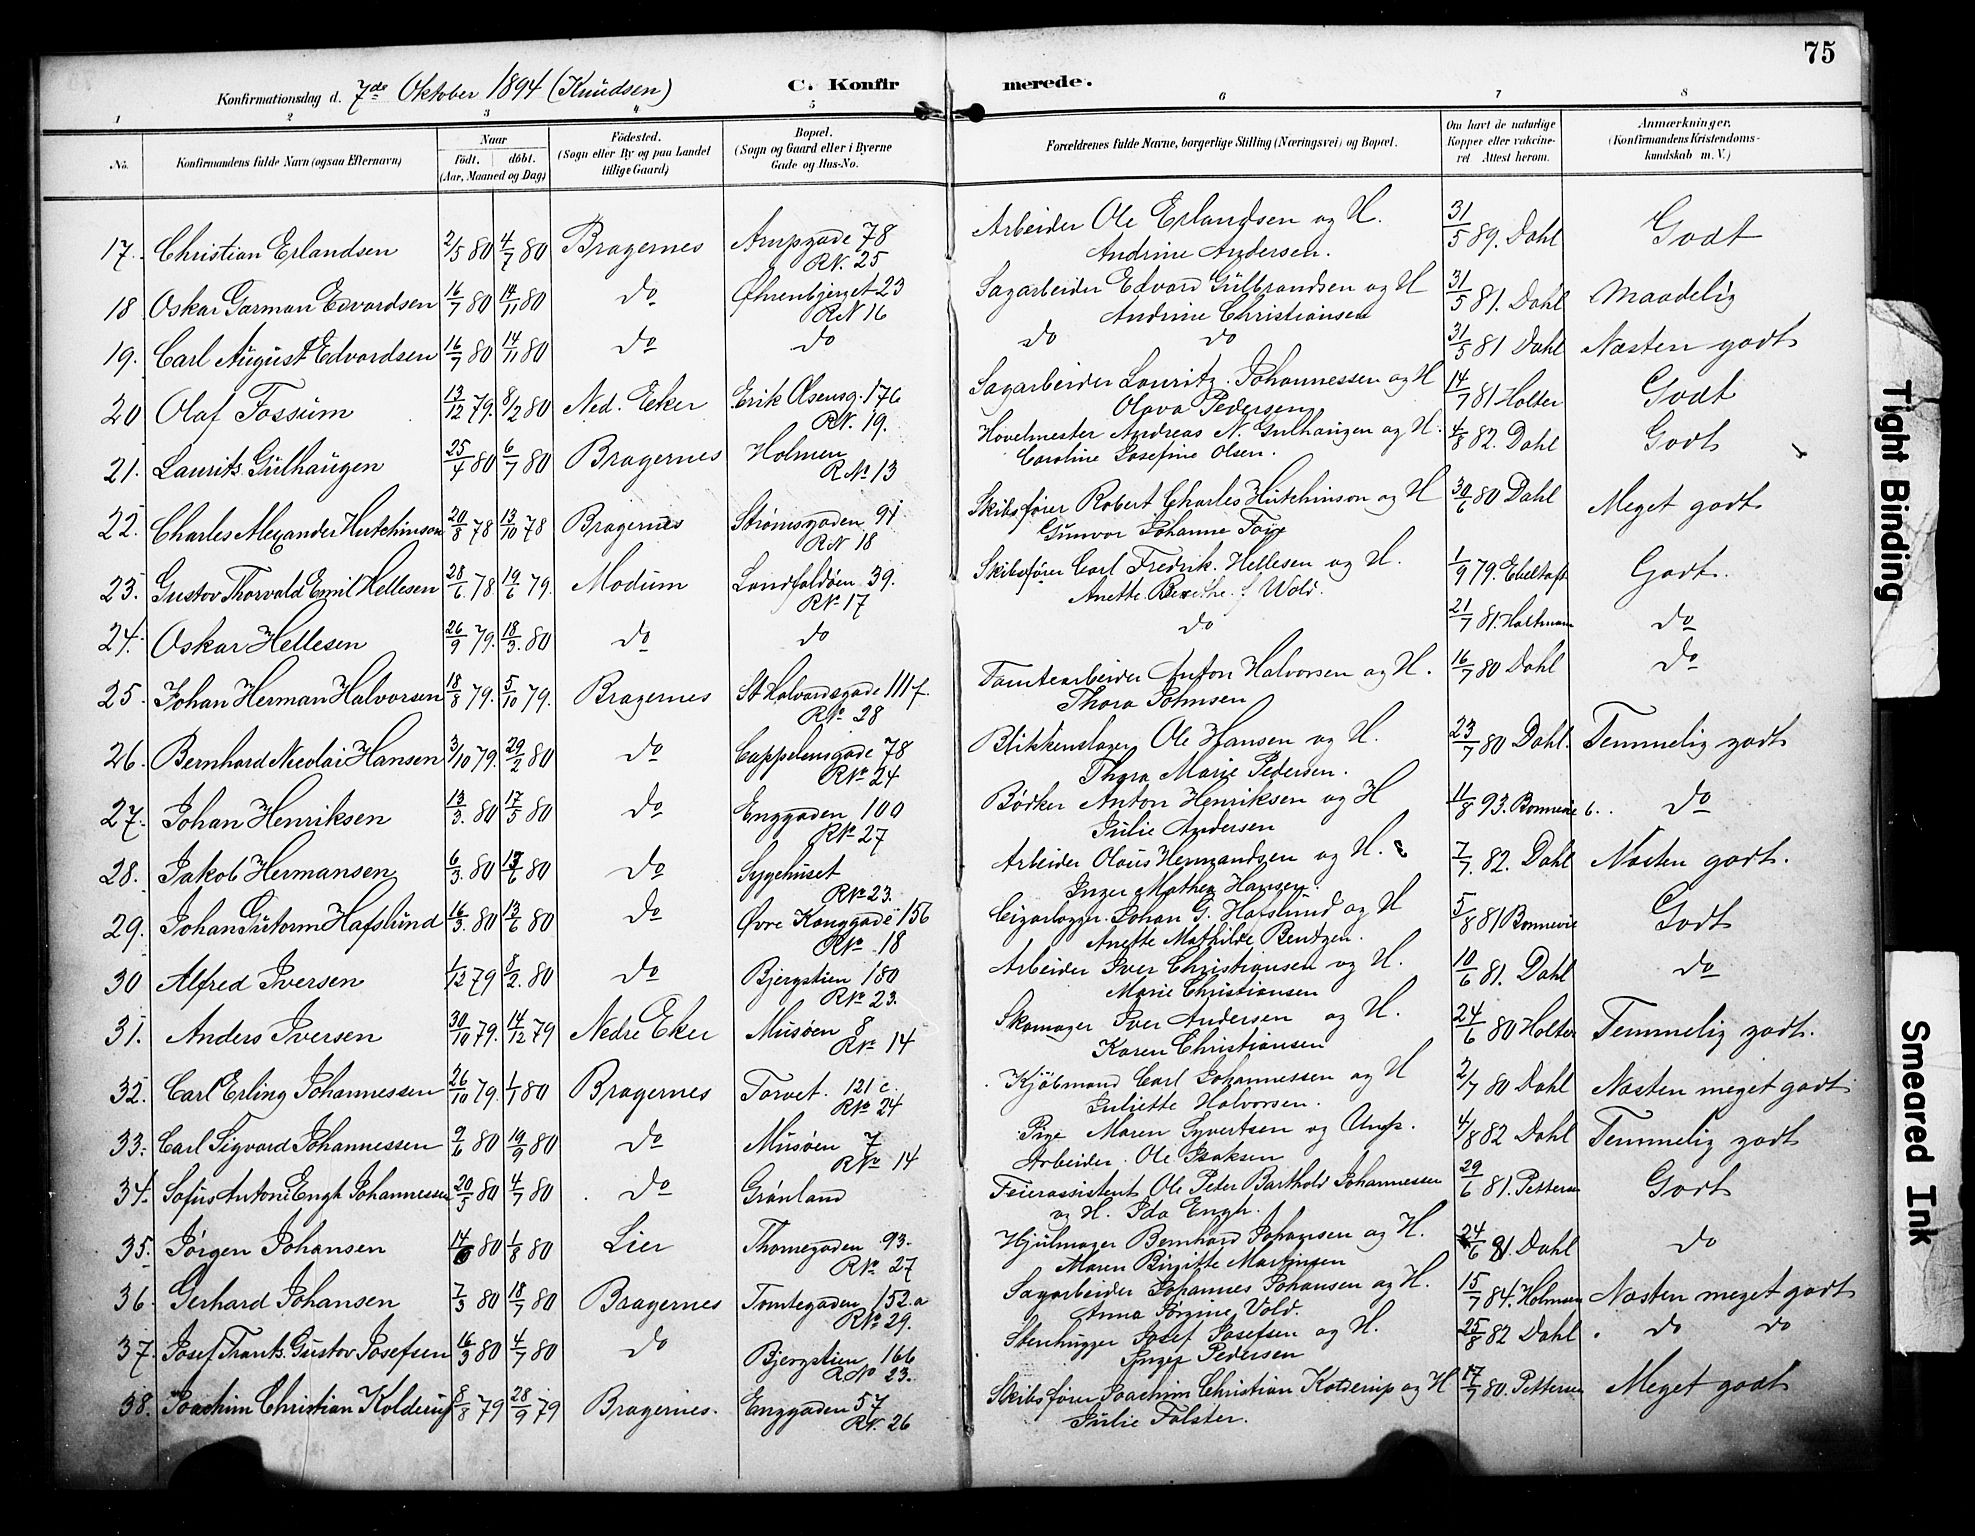 75
Konfirmationsdag d. 7de Oktober 1894 (Knudsen) C. Konfirmerede.
1 2 3 4 5 6 7 8
No. Konfirmandens fulde Navn (ogsaa Efternavn) Naar født. døbt. (Aar, Maaned og Dag) Fødested. (Sogn eller By og paa Landet tillige Gaard) Bopæl. (Sogn og Gaard eller i Byerne Gade og Hus-No. Forældrenes fulde Navne, borgerlige Stilling (Næringsvei) og Bopæl. Om havt de naturlige Kopper eller vakcineret Attest herom. Anmærkninger. (Konfirmandens Kristendomskundskab m. V.)
17. Christian Erlandsen 2/5 80 4/7 80 Bragernes 78 Arbeider Ole Erlandsen og H. 31/5 89. Dahl Godt
RN. 25 Andrine Andersen.
18 Oskar Garman Edvardsen 16/7 80 14/11 80 do Øhrenbjerget 23 Sagarbeider Edvard Gulbrandsen og H 31/5 81. Dahl Maadelig
RN 16 Andrine Christiansen
19. Carl August Edvardsen 16/7 80 14/11 80 do do do do 31/5 81 Dahl Næsten godt
20 Olaf Fossum 13/12 79. 8/2 80 Ned. Eker Erik Olsensg. 176 Sagarbeider Lauritz Johannessen og H 14/7 81 Holter Godt
RN. 19. Olava Pedersen
21. Laurits Gulhaugen 25/4 80 6/7 80 Bragernes Holmen Hovelmester Andreas N. Gulhaugen og H. 4/8 82. Dahl Godt
RNo 13 Caroline Josefine Olsen.
22. Charles Alexander Hutchinson 20/8 78 13/10 78 Bragernes Strømsgaden 91 Skibsfører Robert Charles Hutchinson og H 30/6 80 Dahl Meget godt
RN 18 Gunvor Johanne
23. Gustav Thorvald Emil Hellesen 28/6 78. 19/6 79. Modum Landfaldøen 39. Skibsfører Carl Fredrik Hellesen og H. 1/9 79. Ebeltoft Godt.
RNo 17 Anette Wold.
24. Oskar Hellesen 26/9 79. 18/3. 80 do do do 21/7 81. Holtman do
25. Johan Herman Halvorsen 18/8 79. 5/10 79. Bragernes St Halvardsgade 111 f. Tomtearbeider Anton Halvorsen og H. 16/7 80 Dahl do
RNo 28 Thora Johnsen
26. Bernhard Nicolai Hansen 3/10 79. 29/2 80 do Cappelensgade 78 Blikkenslager Ole Hansen og H. 23/7 80 Dahl. Temmelig godt
RNo 24 Thora Marie Pedersen.
27. Johan Henriksen 13/3. 80 17/5 80 do Enggaden 100 Bødker Anton Henriksen og H 11/8 93. Bonnevie 6.. do
RNo 27 Julie Andersen
28. Jakob Hermansen 6/3. 80 13/6 80 do Sygehuset Arbeider Olaus Hermandsen og H. 7/7. 82. Dahl Næsten godt.
RNo 23. Inger Mathea Hansen.
29. Johan Gutorm Hafslund 16/3. 80 13/6 80 do Øvre Kanggade 156 Cigarlægger. Johan G. Hafslund og H 5/8 81 Bonnevie Godt
RNo 18 Anette Mathilde Bentzen.
30 Alfred Iversen 1/12 79 8/2. 80 do Bjergstien 180 Arbeider Iver Christiansen og H. 10/6 81. Dahl do
RNo 23. Marie Christiansen
31. Anders Iversen 30/10 79. 14/12 79 Nedre Eker Musøen 8 Skomager Iver Andersen og H. 24/6 80 Holter Temmelig godt.
RNo 14 Karen Christiansen
32. Carl Erling Johannessen 26/10 79. 1/1 80 Bragernes Torvet. 121 c. Kjøbmand Carl Johannessen og H 2/7 80 Dahl Næsten meget godt
RNo 24 Juliette Halvorsen.
33. Carl Sigvard Johannessen 9/6 80 19/9 80 do Musøen 7 Pige Maren Syvertsen og Ungk. 4/8 82 Dahl Temmelig godt
RNo 14 Arbeider. Ole Isaksen
34. Sofus Anton Engh Johannessen 20/5 80 4/7 80 do Grønland Feierassistent Ole Peter Barthold Johannessen 29/6 81. Pettersen Godt
og H. Ida Engh.
35. Jørgen Johansen 14/6 80 1/8 80 Lier Thornegaden 93. Hjulmager Bernhard Johansen og H. 24/6 91. Dahl do
RNo 27 Maren Birgitte Martinsen
36 Gerhard Johansen 7/3 80 18/7 80 Bragernes Tomtegaden 152 a Sagarbeider Johannes Johansen og H. 15/7 84. Næsten meget godt
RNo 29. Anna Jørgine Vold.
37. Josef Frants. Gustav Josefsen 16/3 80 4/7 80 do Bjergstien 166 Stenhugger Josef Josefsen og H. 25/8 82 Dahl do do
RNo 23. Inger Pedersen
38. Joachim Christian Kolderup 8/8 79 28/9 79 Bragernes. Enggaden 57 Skibsfører Joachim Christian Kolderup og H 17/7 80. Pettersen Meget godt
RN. 26 Julie Falster.
Tight Binding
Smeared Ink